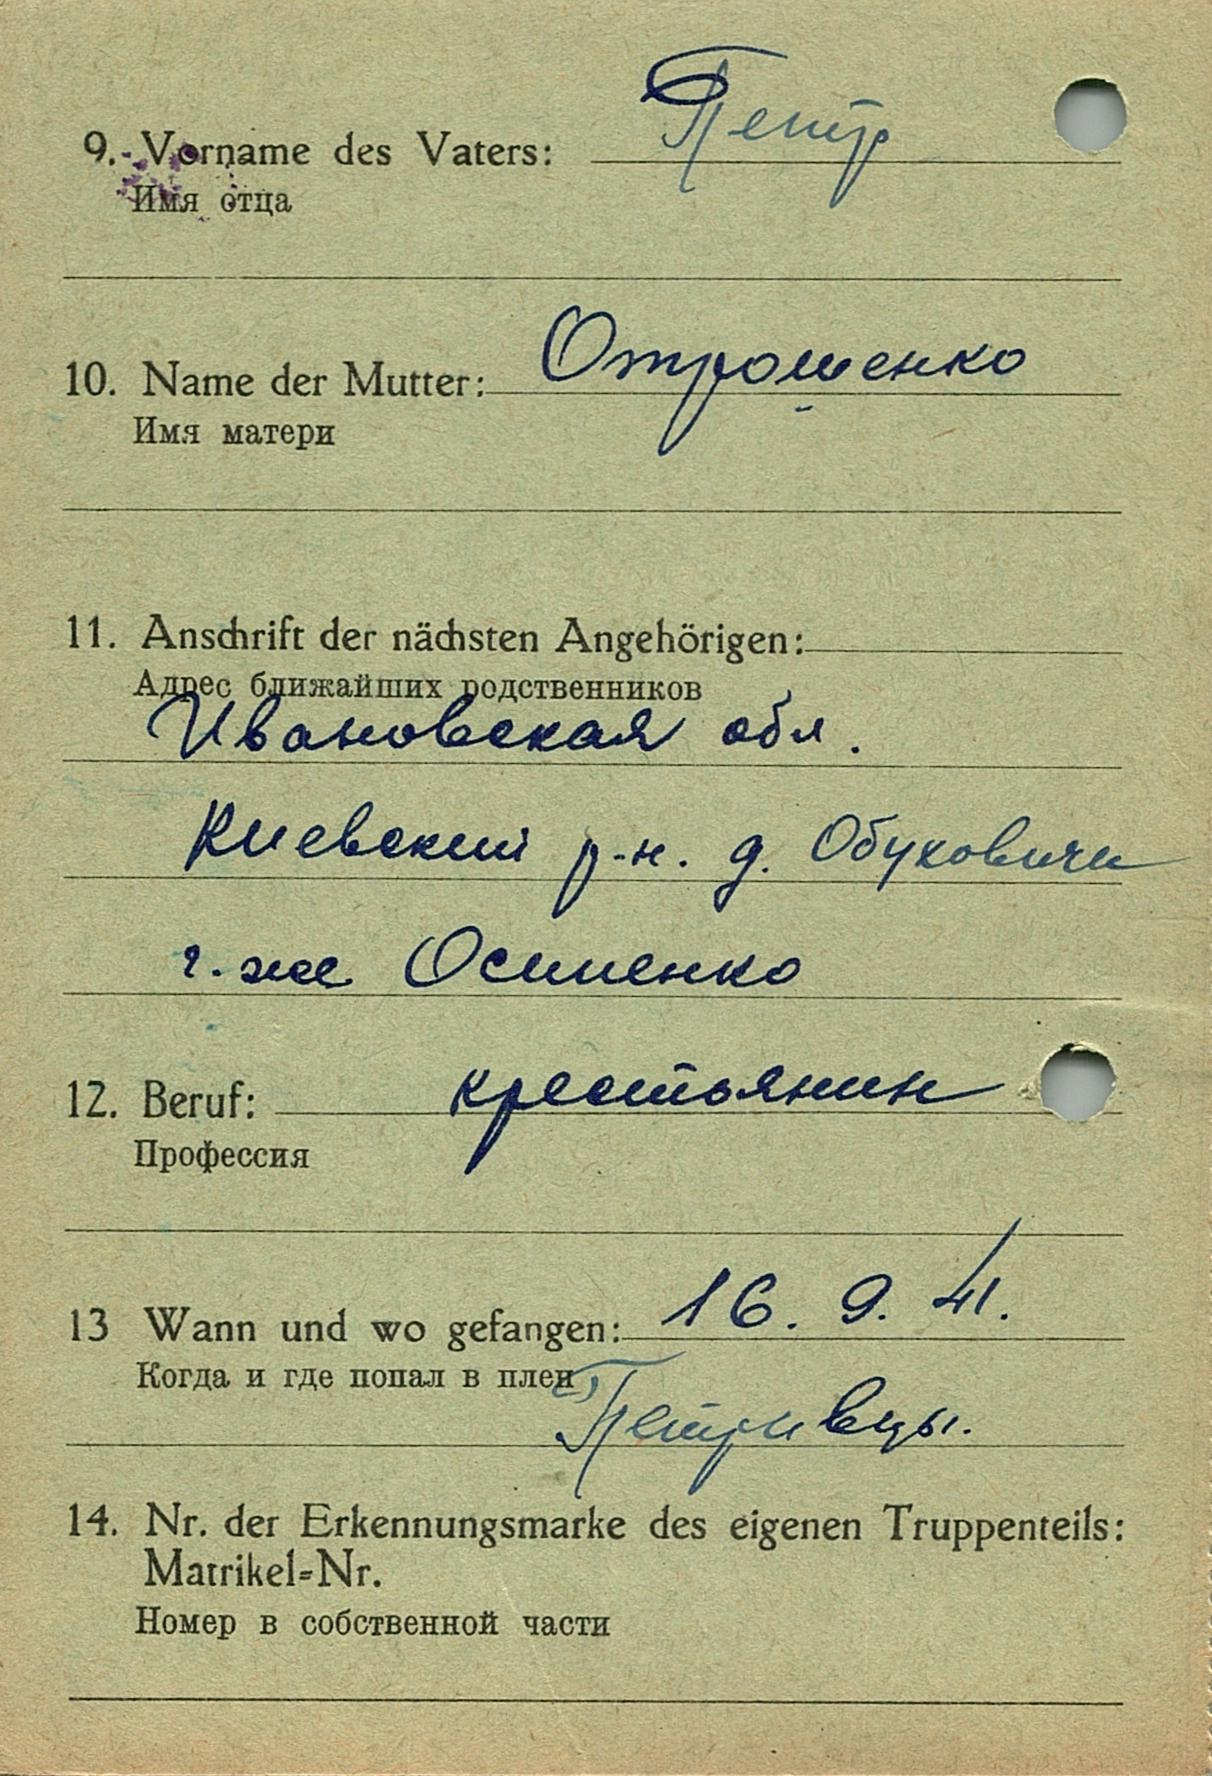 9. Vorname des Vaters: Петр
Имя отца
10. Name der Mutter: Отрошенко
Имя матери
11. Anschrift der nächsten Angehörigen:
Адрес ближайших родственников
Ивановская обл.
Киевский р-н. д. Обуховичи
г. же Осипенко
12. Beruf: крестьянин
Профессия
13 Wann und wo gefangen: 16. 9. 41.
Когда и где попал в плен
Петривцы.
14. Nr. der Erkennungsmarke des eigenen Truppenteils:
Matrikel-Nr.
Номер в собственной части